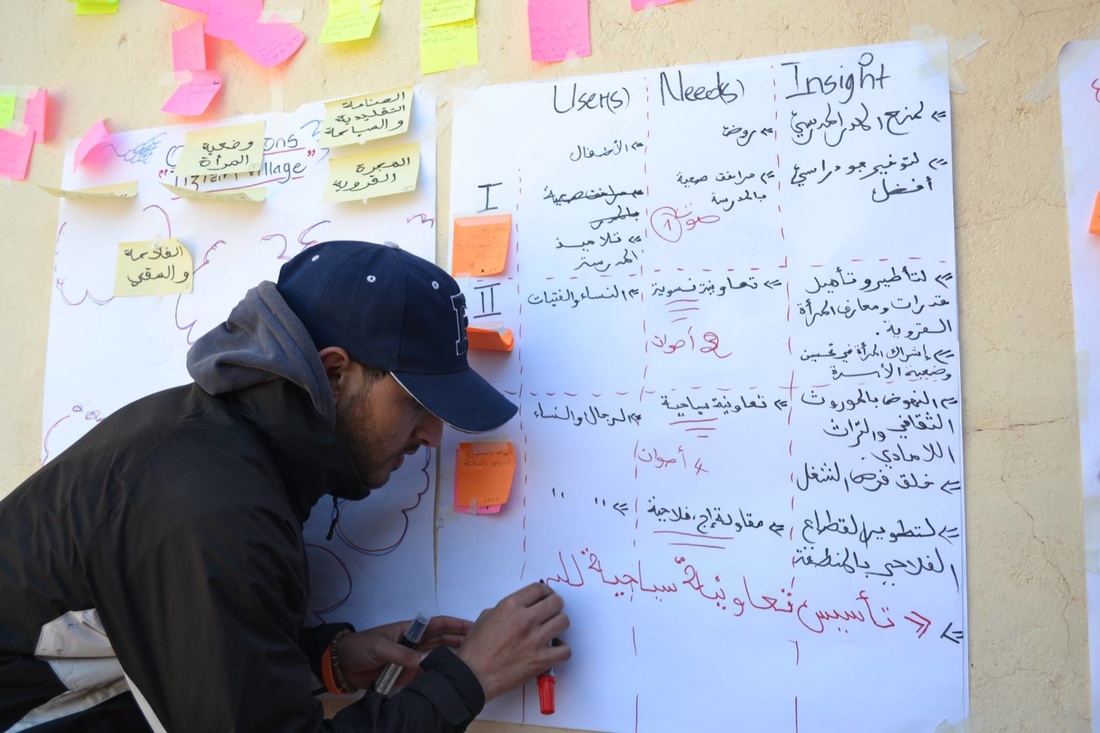 User(s) Need(s) Insight
الصناعة
التقليدية
والسياحة
وضعية
المرأة
الهجرة
القروية
village"
الفلاحة
والسقي
I
الأطفال
تلاميذ
المدرسة
روض
مرافق صحية
بالمدرسة
صوت 1
لمنع الهدر المدرسي
لتوفير جو دراسي
أفضل
II
النساء والفتيات
تعاونية نسوية
2 أصوات
لتأطير و تأهيل
قدرات ومعارف المرأة
القروية.
إشراك المرأة في تحسين
وضعية الأسرة
الرجال والنساء
تعاونية سياحية
4 أصوات
النهوض بالموروث
الثقافي والتراث
اللامادي.
خلق فرص الشغل
" "
مقاولة إج. فلاحية
لتطوير القطاع
الفلاحي بالمنطقة
تأسيس تعاونية سياحية